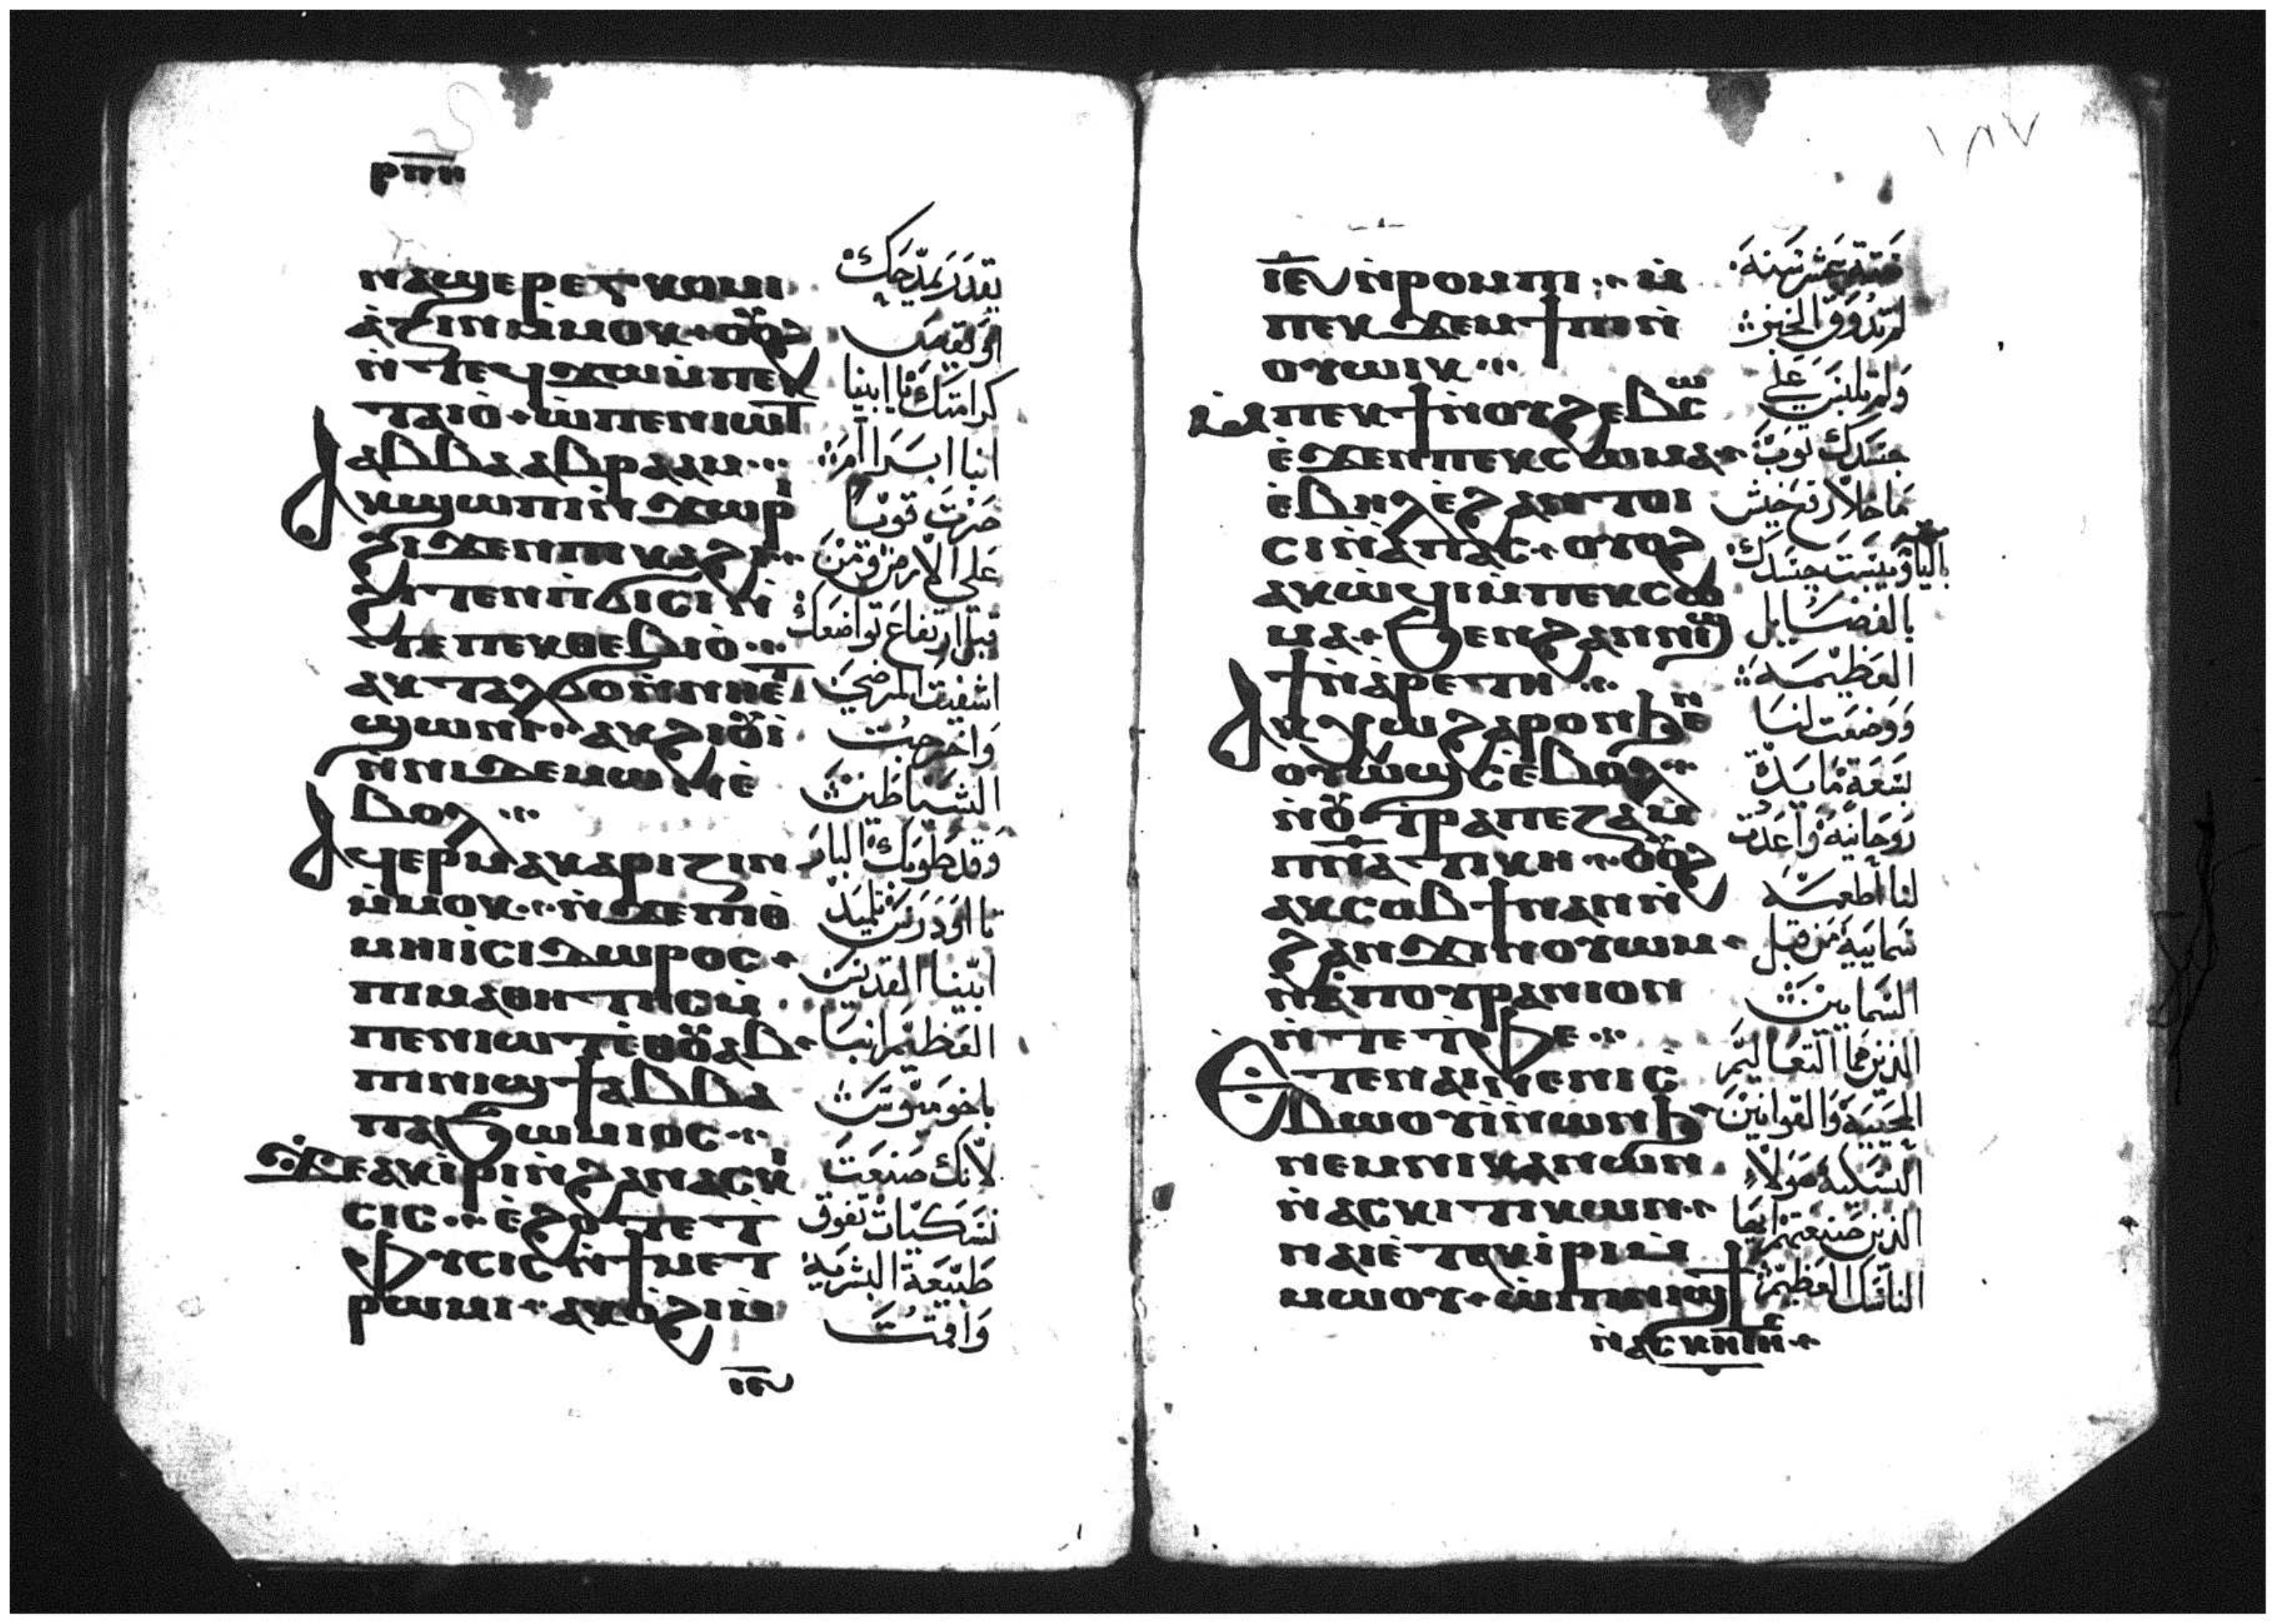 ⲣⲡⲏ
ⲛⲁϣⲉⲣⲉⲩⲕⲱⲙⲓ
ⲛ̀ⲧⲉϥϫⲱⲙ̀ⲡⲉⲕ
ⲧⲁⲓⲟ̀ ⲱ̀ⲡⲉⲛⲓⲱⲧ
ⲁⲃⲃⲁ ⲁⲃⲣⲁⲁⲙ
ⲁⲕϣⲱⲡⲓ ⲛ̀ϫⲱⲣⲓ
ϩⲓϫⲉⲛ ⲡⲓⲕⲁϩⲓ
ϩⲓⲧⲉⲛ ⲡ̀ϭⲓⲥⲓ ⲛ̀
ⲧⲉ ⲡⲉⲕⲑⲉⲃⲓⲟ̀
ⲁⲕⲧⲁⲗϭⲟ ⲛ̀ⲛⲏⲉⲧ
ϣⲱⲛⲓ ⲁⲕϩⲓⲟⲩⲓ
ⲛ̀ⲛⲓⲇⲉⲙⲱⲛ ⲉ̀
ⲃⲟⲗ
ⲁϥⲉⲣⲙⲁⲕⲁⲣⲓⲍⲓⲛ
ⲙ̀ⲙⲟⲕ ⲛ̀ϫⲉ ⲡⲓⲟ̀
ⲙⲏⲓ ⲓⲥⲓⲇⲱⲣⲟⲥ
ⲡⲓⲙⲁⲑⲏⲧⲏⲥ ⲙ̀
ⲡⲉⲛⲓⲱⲧ ⲉ̀ⲑⲟⲩⲁⲃ
ⲡⲓⲛⲓϣϯ ⲁⲃⲃⲁ
ⲡⲁϧⲱⲙⲓⲟⲥ
ϫⲉ ⲁⲕⲓ̀ⲣⲓ ⲛ̀ϩⲁⲛⲁⲥⲕⲏ
ⲥⲓⲥ ⲉ̀ϩⲟⲧⲉ ⲧ
ⲫⲩⲥⲓⲥ ⲛ̀ϯⲙⲉⲧ
ⲣⲱⲙⲓ ⲁⲕⲟ̀ϩⲓ ⲙ̀
ⲓⲉ
تقدر يمدحك
او تقيس
كرامتك يا ابينا
انبا ابرام
صرت قويا
على الارض من
قبل ارتفاع تواضعك
اشفيت المرضى
واخرجت
الشياطين
وقد طوبك البار
ابينا القديس
العظيم انبا
باخوميوس
لانك صنعت
نسكيات تفوق
طبيعة البشرية
واقمت
١٨٧
ⲓⲉ ⲛ̀ⲣⲟⲙⲡⲓ ⲙ̀
ⲡⲉⲕϫⲉⲙϯⲡⲓ ⲛ̀
ⲟⲩⲱⲓⲕ
ⲙ̀ⲡⲉⲕϯ ⲛ̀ⲟⲩϩⲉⲃⲥⲱ
ⲉ̀ϫⲉⲛ ⲡⲉⲕⲥⲱⲙⲁ
ⲉ̀ⲃⲏⲗ ⲉ̀ϩⲁⲛⲧⲟⲓ
ⲥⲓ ⲛ̀ⲁⲡⲁⲥ ⲟⲩⲟϩ
ⲙⲁ ϧⲉⲛ ϩⲁⲛⲛⲓϣ
ϯ ⲛ̀ⲁⲣⲉⲧⲏ
ⲁⲕⲭⲱ ϧⲁⲣⲟⲛ ϧⲉⲛ
ⲟⲩⲱϣⲥ ⲉ̀ⲃⲟⲗ
ⲛ̀ⲟⲩⲧⲣⲁⲡⲉⲍⲁ ⲙ̀
ⲡⲛ̅ⲁⲧⲓⲕⲏ ⲟⲩⲟϩ
ⲁⲕⲥⲟⲃϯ ⲛⲁⲛ ⲛ̀
ϩⲁⲛϫⲓⲛⲟⲩⲱⲙ
ⲛ̀ⲉⲡⲟⲩⲣⲁⲛⲓⲟⲛ
ⲛ̀ⲧⲉ ⲧ̀ⲫⲉ
ⲉ̀ⲧⲉ ⲛⲁⲓ ⲛⲉ ⲛⲓⲥ
ⲃⲱⲟⲩⲓ ⲛ̀ⲱⲛϧ
ⲛⲉⲙ ⲛⲓⲕⲁⲛⲱⲛ
ⲛ̀ⲁⲥⲕⲓⲧⲓⲕⲱⲛ
ⲛⲁⲓ ⲉ̀ⲧⲁⲕⲓ̀ⲣⲓ ⲙ̀
ⲙⲱⲟⲩ ⲱ̀ ⲡⲓⲛⲓϣϯ
ⲛ̀ⲁⲥⲕⲏⲧⲏⲥ
خمسة عشر سنة
لم تذوق الخبز
ولم تلبس على
جسدك ثوب
ما خلا رقع خيش
بالية ويبست جسدك
بالفضايل
العظيمة
ووضعت لنا
بسعة مايدة
روحانية واعدت
لنا اطعمة
سمايية من قبل
السماييين
الذين هما التعاليم
المحيية والقوانين
النسكية هولاء
الذين صنعتهم ايها
الناسك العظيم